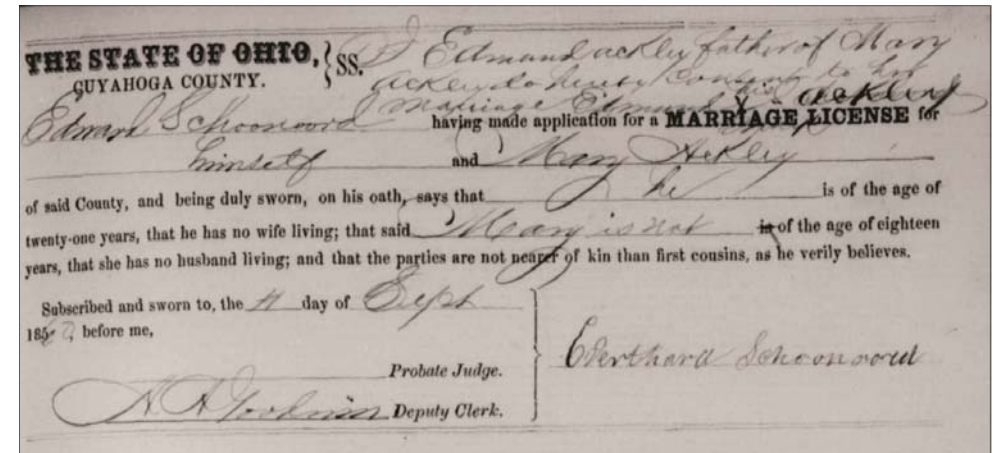 THE STATE OF OHIO, } SS. I Edmund Ackley father of Mary
CUYAHOGA COUNTY. Ackley do hereby Consent to her
marriage Edmund his X Ackley
Edward Schoonoord having made application for a MARRIAGE LICENSE for
himself and Mary Ackley
of said County, and being duly sworn, on his oath, says that he is of the age of
twenty-one years, that he has no wife living; that said Mary is not is of the age of eighteen
years, that she has no husband living; and that the parties are not nearer of kin than first cousins, as he verily believes.
Subscribed and sworn to, the day of Sept
185 , before me,
Everthard Schoonoord
Probate Judge.
Deputy Clerk.